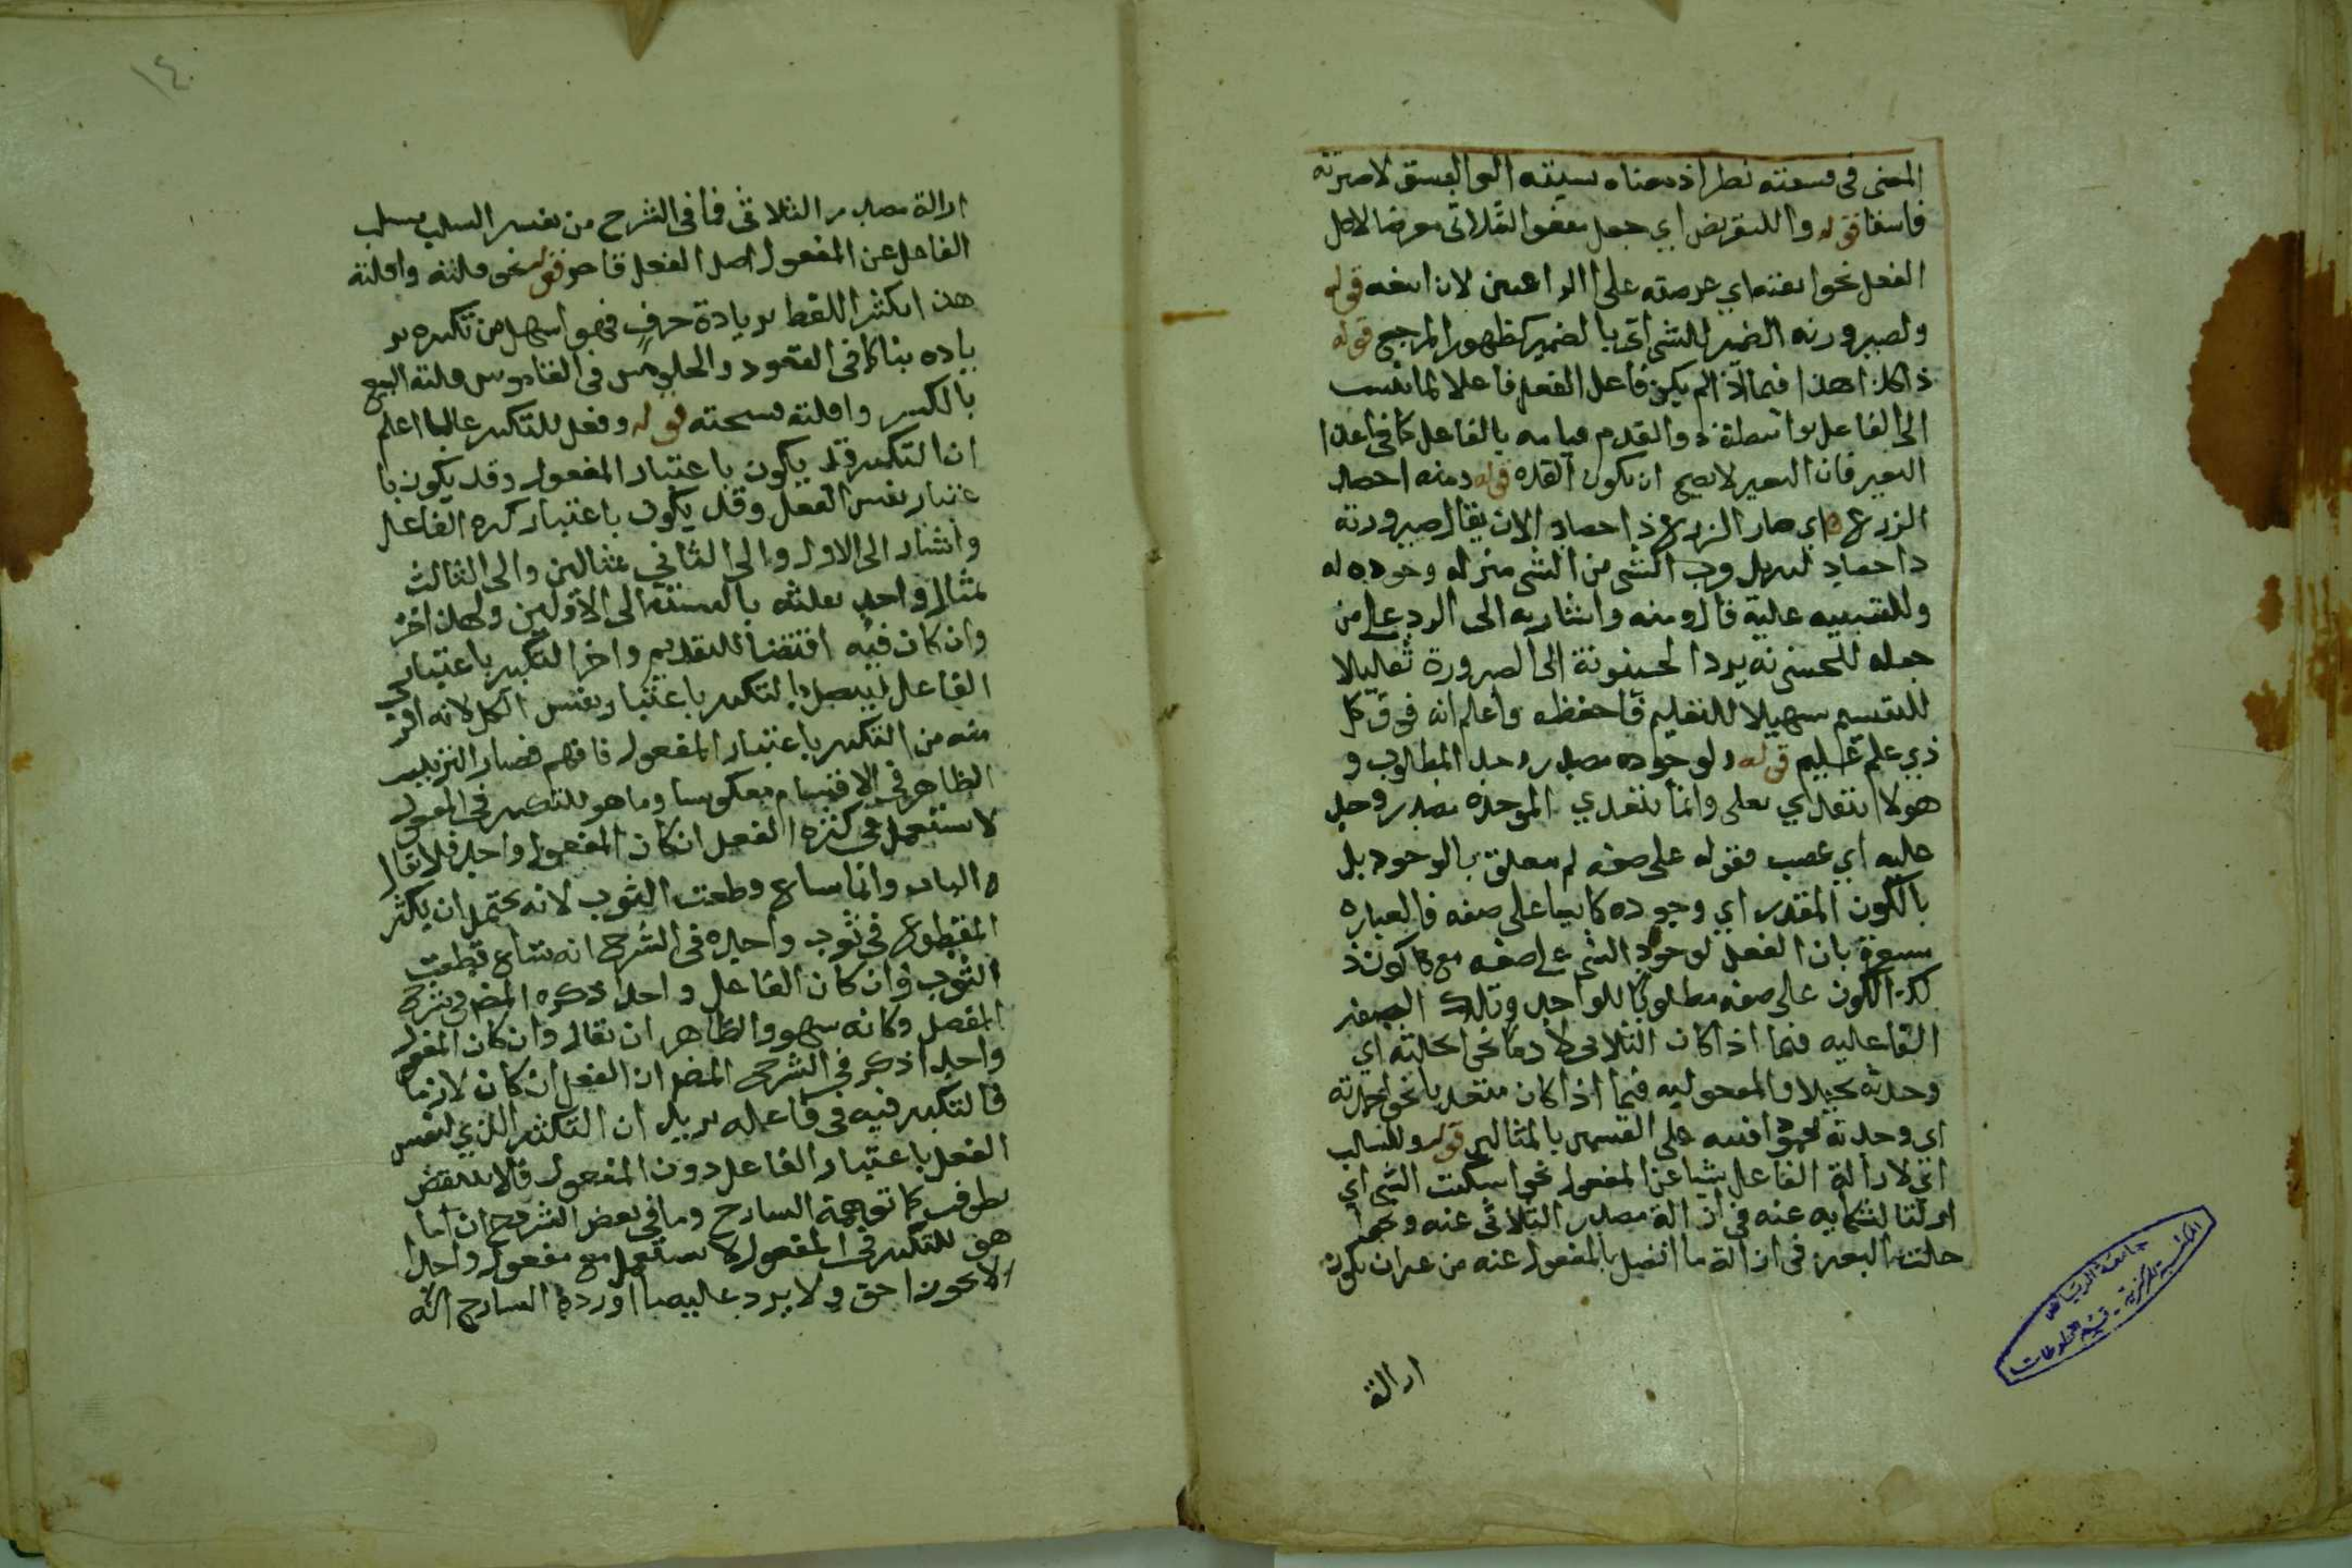 المعنى في فسقته نظر اذ معناه نسبته الى الفسق لا صيرته
فاسقا قوله وللتعريض اي جعل مفعول الثلاثي معرضا لاصل
الفعل نحو ابعته اي عرضته على الراغبين لان ابيعه قوله
ولصيرورته الضمير للشي اتى بالضمير لظهور المرجع قوله
ذا كذا هذا فيما اذا لم يكن فاعل الفعل فاعلا لما نسب
الى الفاعل بواسطة ذو القدم قيامه بالفاعل كما في اغد
البعير فان البعير لا يصح ان يكون الغده قوله ومنه احصد
الزرع اي صار الزرع ذا حصاد الان يقال صيرورته
ذا حصاد لتنزيل قرب الشي من الشي منزله وجوده له
وللتنبيه عليه قال ومنه واشار به الى الرد على من
جعله للحينونه يرد الحينونة الى الصرورة تقليلا
للتقسيم تسهيلا للتعليم فاحفظه واعلم انه فوق كل
ذي علم عليم قوله ولوجوده مصدر وجد المطلوب و
هو لا يتعدى بعلى وانما يتعدي الموجدة مصدر وجد
عليه اي غضب فقوله على صفه لم يتعلق بالوجود بل
بالكون المقدر اي وجوده كاينا على صفه فالعباره
مشعرة بان الفعل لوجود الشي على صفه مع كون ذ
لك الكون على صفه مطلوبا للواجد وتلك الصفه
الفاعليه فيما اذا كان الثلاثي لازما نحو ابخلته اي
وجدته بخيلا والمفعوليه فيما اذا كان متعديا نحو احمدته
اي وجدته محمودا فنبه على القسمين بالمثالين قوله وللسلب
اي لازالة الفاعل شيا عن المفعول نحو اشكيت الشي اي
ازلت الشكايه عنه في ازالة مصدر الثلاثي عنه ونحو
جلدت البعير في ازالة ما اتصل بالمفعول عنه من غير ان يكون
ازالة
جامعة الرياض
المكتبة المركزية - قسم المخطوطات
١٤٠
ازالة مصدر الثلاثي فما في الشرح من تفسير السلب بسلب
الفاعل عن المفعول اصل الفعل قاصر قوله نحو قلته واقلته
هذا بكثر اللفظ بزيادة حرف فهو اسهل من تكثيره بز
يادة بناء كما في القعود والجلوس في القاموس قلته البيع
بالكسر واقلته فسخته قوله وفعل للتكثير غالبا اعلم
ان التكثير قد يكون باعتبار المفعول وقد يكون با
عتبار نفس الفعل وقد يكون باعتبار كثره الفاعل
واشار الى الاول والى الثاني بمثالين والى الثالث
بمثال واحد لقلته بالنسبة الى الاولين ولهذا اخر
وان كان فيه اقتضا للتقديم واخر التكثير باعتبار
الفاعل ليتصل بالتكثير باعتبار نفس الكل لانه اقر
منه من التكثير باعتبار المفعول فافهم فصار الترتيب
الظاهر في الاقسام معكوسا وما هو للتكثير في المفعول
لا يستعمل في كثره الفعل ان كان المفعول واحد فلا يقال
الباب وانما ساغ قطعت الثوب لانه يحتمل ان يكثر
المقطوع في ثوب واحد في الشرح انه شاع قطعت
الثوب وان كان الفاعل واحدا ذكره المض في شرح
المفصل وكانه سهو والظاهر ان يقال وان كان المفعول
واحدا ذكر في الشرح المض ان الفعل ان كان لازما
فالتكثير فيه في فاعله يريد ان التكثير الذي لنفس
الفعل باعتبار الفاعل دون المفعول فلا ينتقض
بطوف كما توهمه الشارح وما في بعض الشروح ان ما
هو للتكثير في المفعول لا يستعمل مع مفعول واحد
الا يجوزا حق ولا يرد عليه ما اورده الشارح انه